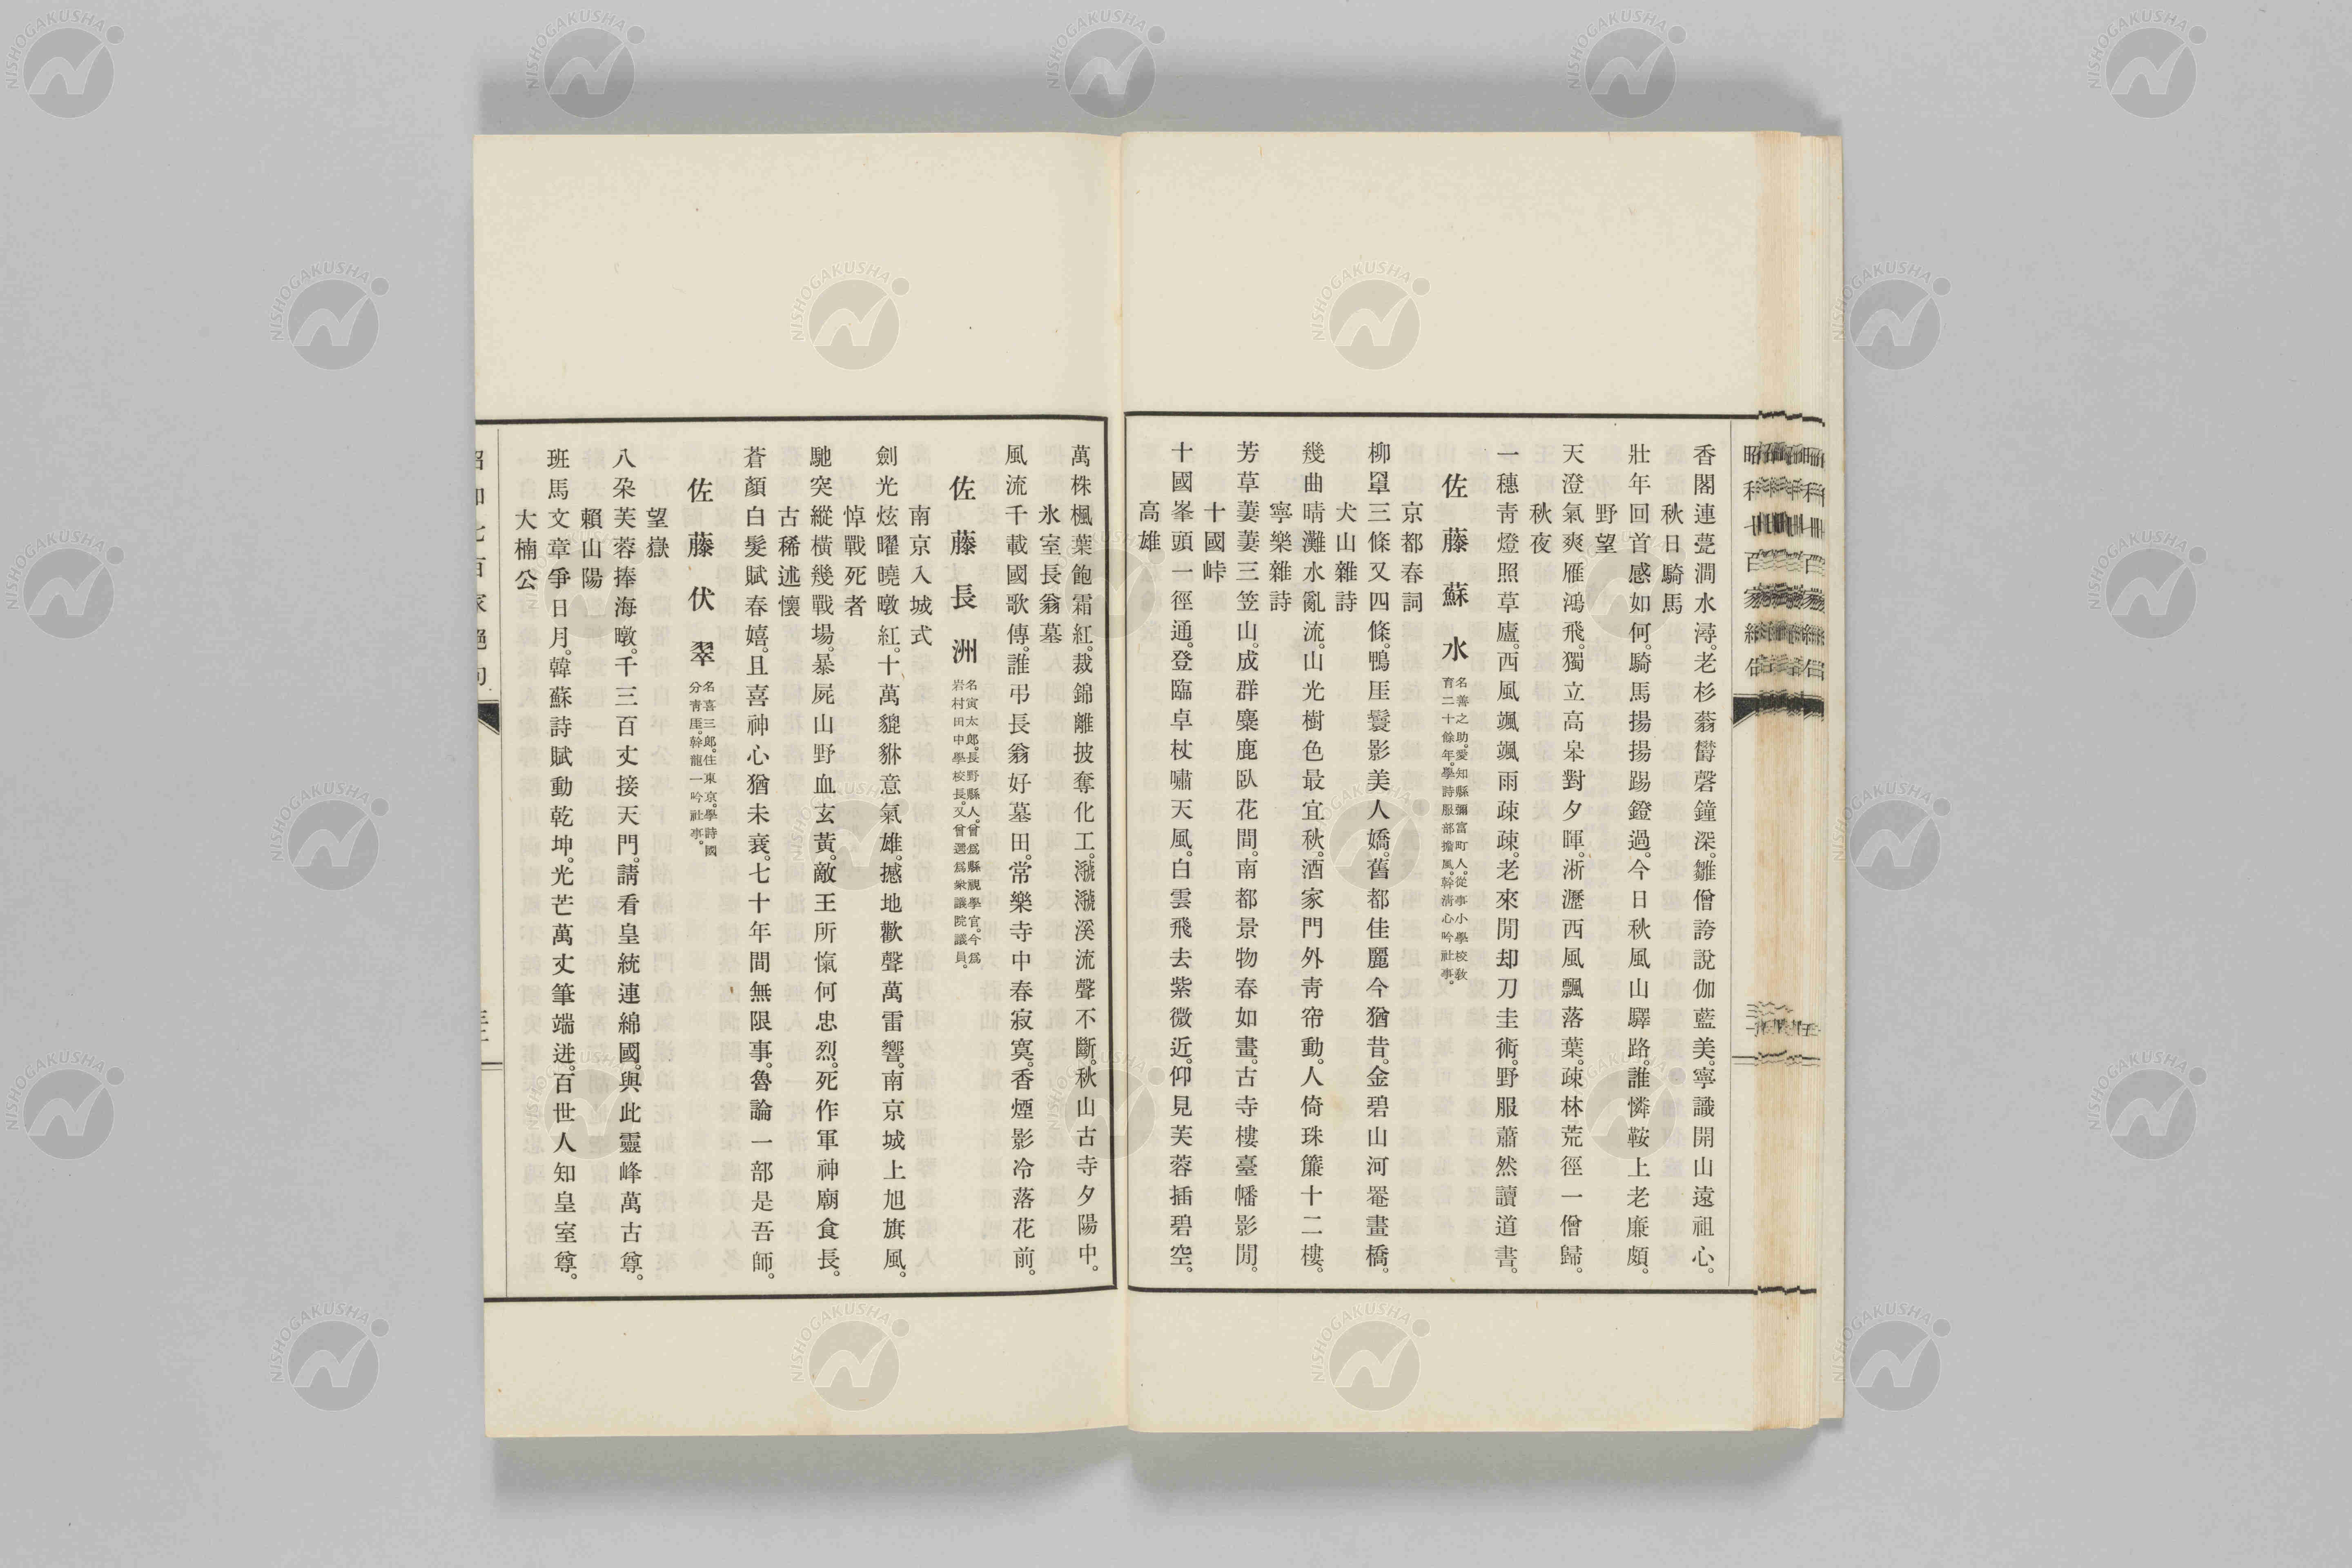 香閣連甍澗水潯。老杉蓊欝磬鐘深。雛僧誇說伽藍美。寧識開山遠祖心。
秋日騎馬
壯年回首感如何。騎馬揚揚踢鐙過。今日秋風山驛路。誰憐鞍上老廉頗。
野望
天澄氣爽雁鴻飛。獨立高皋對夕暉。淅瀝西風飄落葉。疎林荒徑一僧歸。
秋夜
一穗靑燈照草廬。西風颯颯雨疎疎。老來閒却刀圭術。野服蕭然讀道書。
佐藤蘇水
名善之助。愛知縣彌富町人。從事小學校敎
育二十餘年。學詩服部擔風。幹淸心吟社事。
京都春詞
柳罩三條又四條。鴨厓鬟影美人嬌。舊都佳麗今猶昔。金碧山河罨畫橋。
犬山雜詩
幾曲晴灘水亂流。山光樹色最宜秋。酒家門外靑帘動。人倚珠簾十二樓。
寧樂雜詩
芳草萋萋三笠山。成群麋鹿臥花間。南都景物春如畫。古寺樓臺幡影閒。
十國峠
十國峯頭一徑通。登臨卓杖嘯天風。白雲飛去紫微近。仰見芙蓉插碧空。
高雄
萬株楓葉飽霜紅。裁錦離披奪化工。潑潑溪流聲不斷。秋山古寺夕陽中。
氷室長翁墓
風流千載國歌傳。誰弔長翁好墓田。常樂寺中春寂寞。香煙影冷落花前。
佐藤長洲
名寅太郎。長野縣人。曾爲縣視學官。今爲
岩村田中學校長。又曾選爲衆議院議員。
南京入城式
劍光炫曜曉暾紅。十萬貔貅意氣雄。撼地歡聲萬雷響。南京城上旭旗風。
悼戰死者
馳突縱橫幾戰場。暴屍山野血玄黃。敵王所愾何忠烈。死作軍神廟食長。
古稀述懷
蒼顏白髮賦春嬉。且喜神心猶未衰。七十年間無限事。魯論一部是吾師。
佐藤伏翠
名喜三郎。住東京。學詩國
分靑厓。幹龍一吟社事。
望嶽
八朶芙蓉捧海暾。千三百丈接天門。請看皇統連綿國。與此靈峰萬古尊。
賴山陽
班馬文章爭日月。韓蘇詩賦動乾坤。光芒萬丈筆端迸。百世人知皇室尊。
大楠公